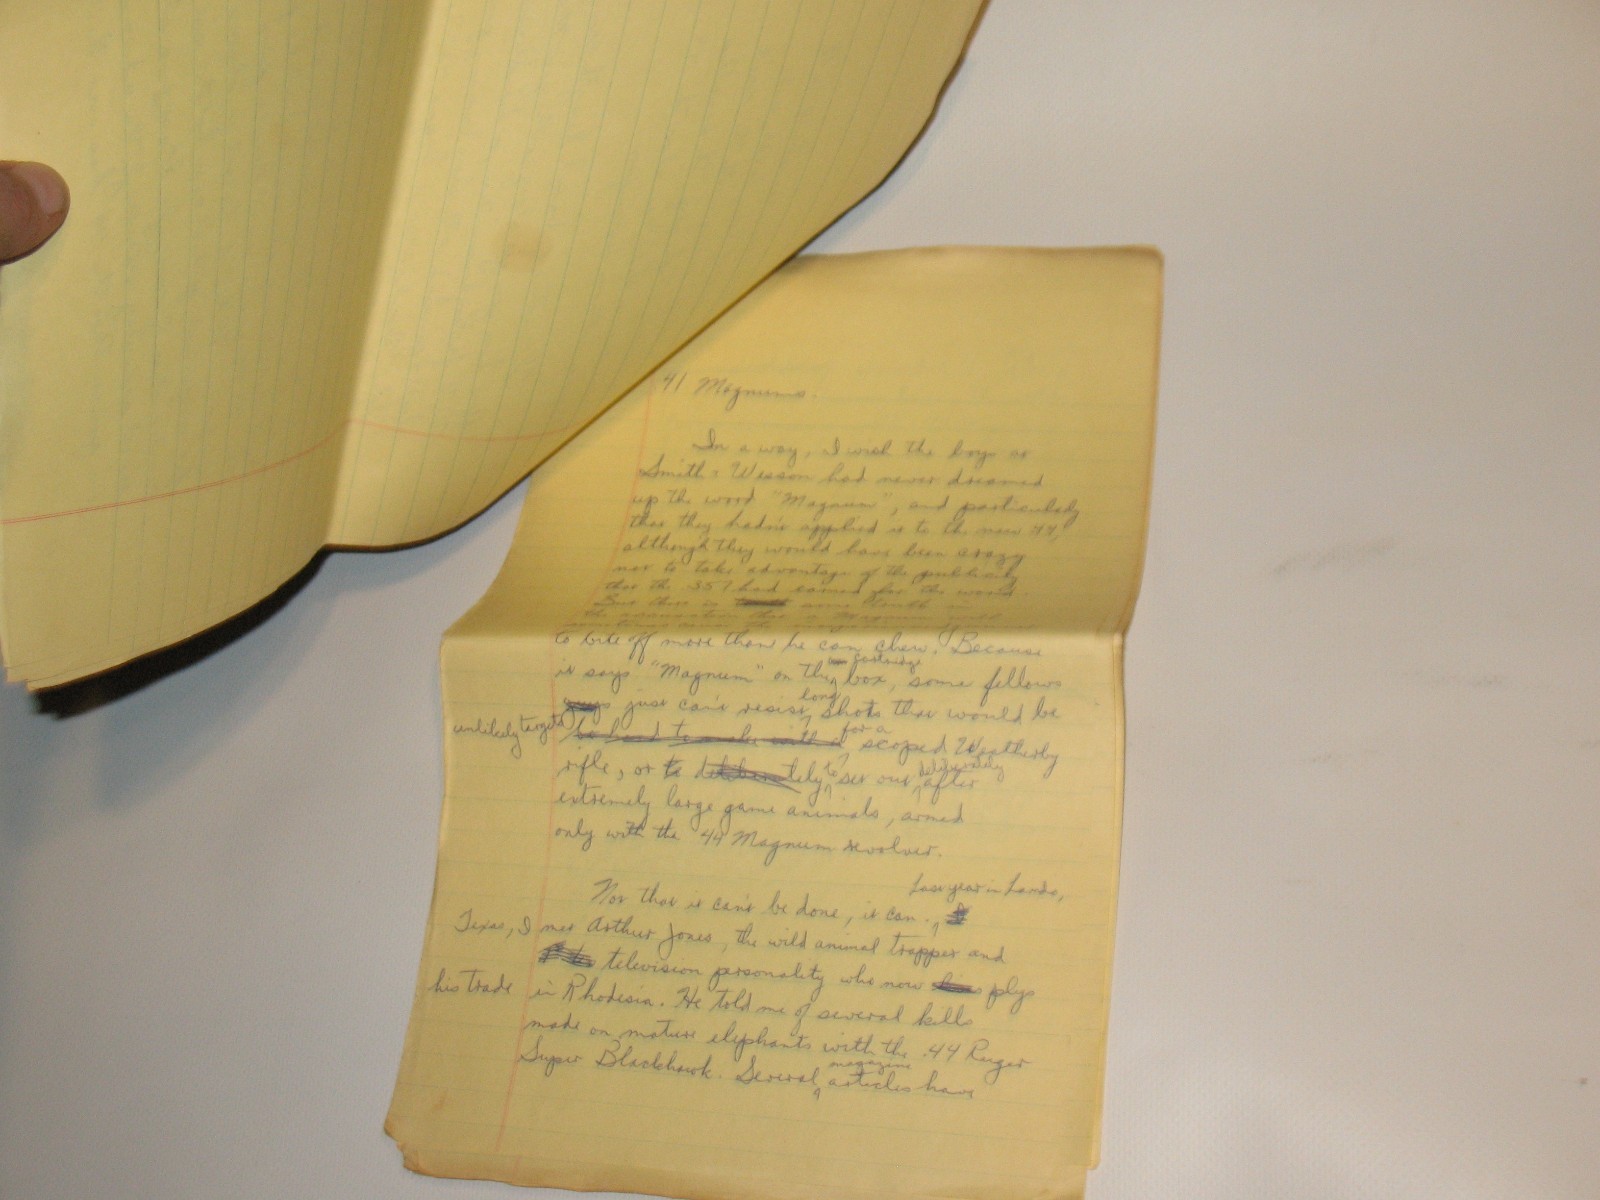 41 Magnums.
In a way, I wish the boys at
Smith & Wesson had never dreamed
up the word "Magnum", and particularly
that they hadn't applied it to the new 44,
although they would have been crazy
not to take advantage of the publicity
that the 357 had earned for the word.
But there is some truth in
to bite off more than he can chew. Because
cartridge
it says "Magnum" on the box, some fellows
long
guys just can't resist shots that would be
unlikely targets be hard to make with a for a scoped Weatherby
rifle, or to deliberately to set out deliberately after
extremely large game animals, armed
only with the 44 Magnum revolver.
Last year in
Not that it can't be done, it can.
Texas, I met Arthur Jones, the wild animal trapper and
television personality who now plys
his trade in Rhodesia. He told me of several kills
made on mature elephants with the .44 Ruger
magazine
Super Blackhawk. Several articles have